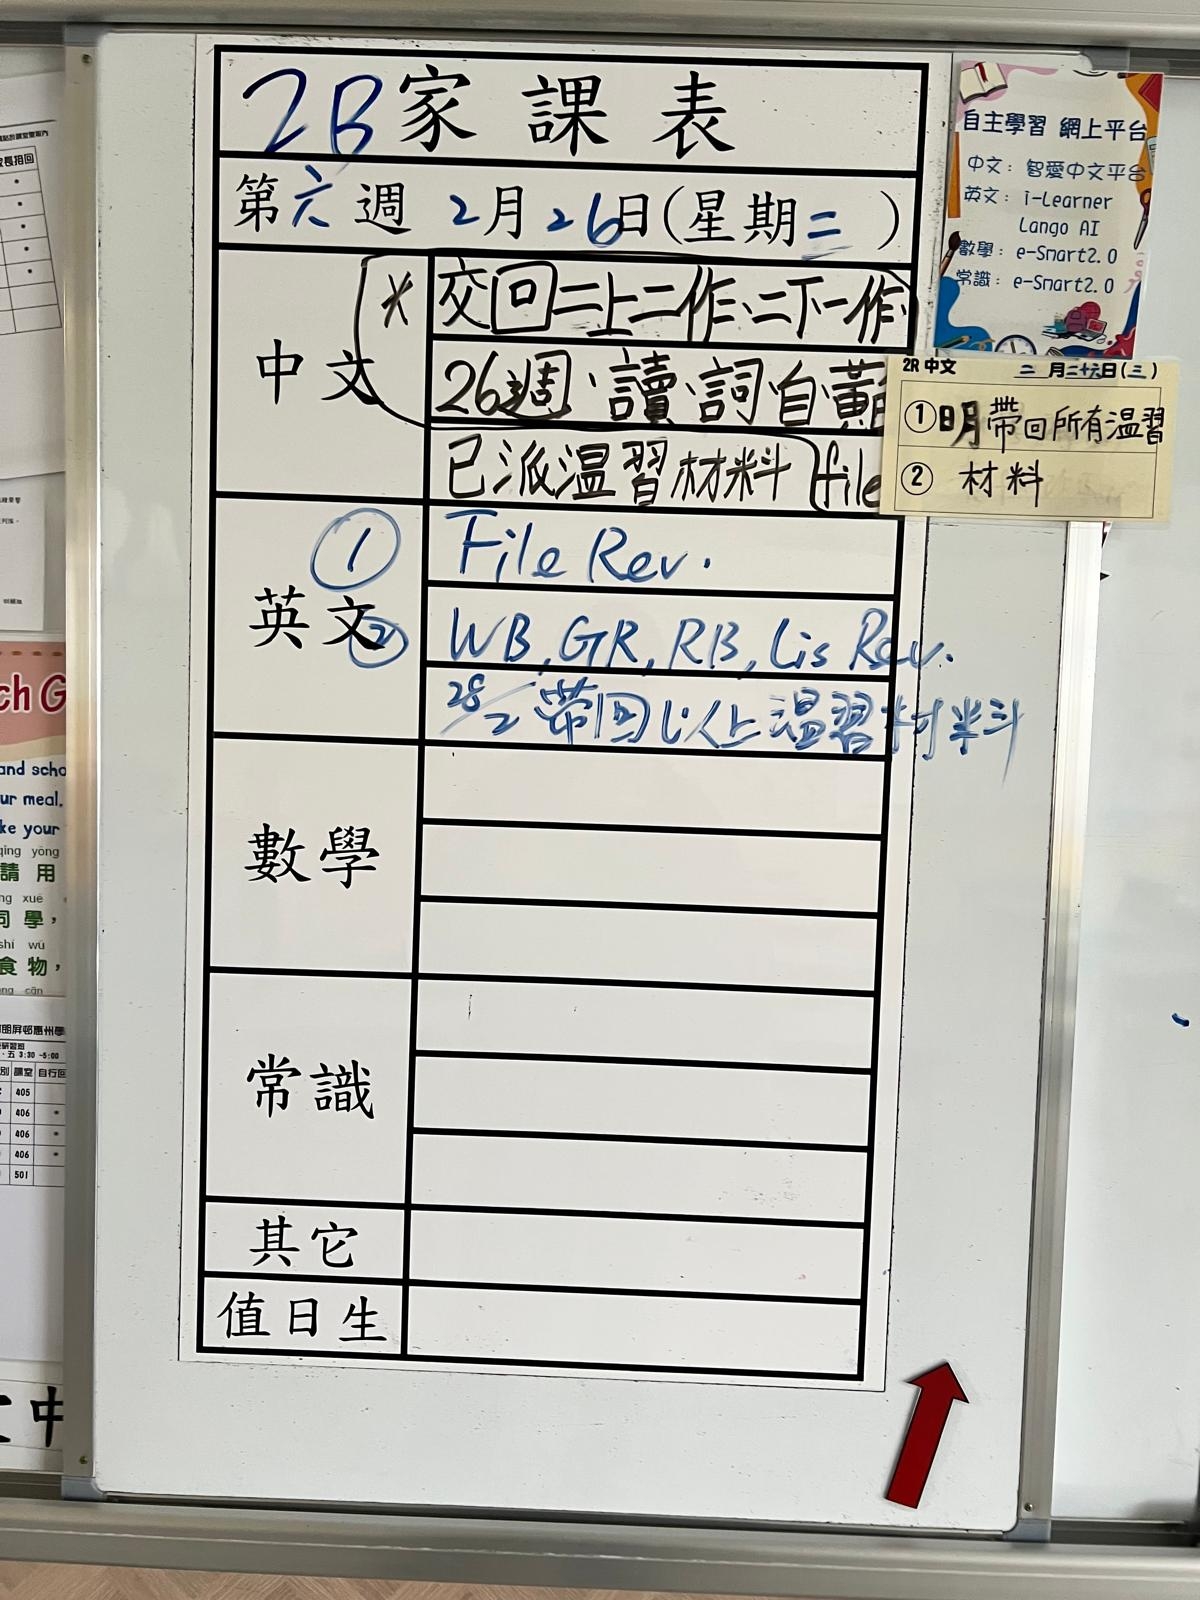 2B家課表
第六週 2月26日(星期二 )
中文
* 交回二上二作、二下一作、
26週、讀、詞自
已派温習材料 file
2R 中文 二月二十六日(三)
①明帶回所有温習
② 材料
英文
① File Rev.
② WB, GR, RB, Lis Rev.
28/2 帶回以上温習材料
數學
常識
其它
值日生
自主學習 網上平台
中文: 智愛中文平台
英文: i-Learner
Lango AI
數學: e-Smart2.0
常識: e-Smart2.0
家長捐回
ch G
and scho
ur meal,
ke your
qǐng yòng
請 用
ng xué
同 學,
shí wù
食 物,
ng cān
五 3:30 -5:00
別 課室 自行回
405
406 *
406 *
406 *
501
中